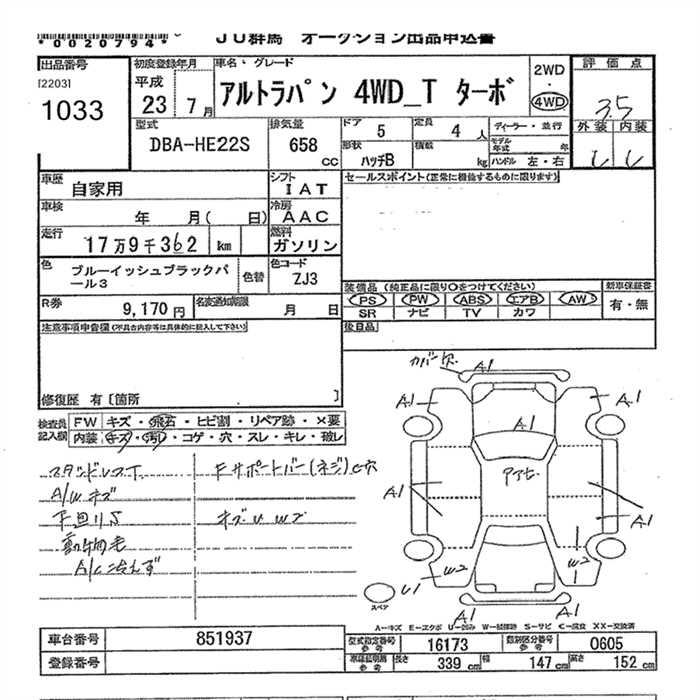 *0020794*
JU群馬 オークション出品申込書
出品番号
[2203]
1033
初度登録年月
平成
23 7月
車名・グレード
アルトラパン 4WD_T ターボ
2WD
・
4WD
評価点
3.5
外装 内装
型式
DBA-HE22S
排気量
658 cc
ドア 5
定員 4 人
ディーラー・並行
形状 ハッチB
積載 kg
モデル年式 年
ハンドル 左・右
車歴 自家用
シフト IAT
車検 年 月( 日)
冷房 AAC
走行 17万9千362 km
燃料 ガソリン
色 ブルーイッシュブラックパール3
色替
色コード ZJ3
R券 9,170円
名変通知期限 月 日
セールスポイント(正常に機能するものに限ります)
装備品(純正品に限り○をつけてください)
新車保証書
PS PW ABS エアB AW
SR ナビ TV カワ
有・無
後日品
注意事項申告欄(不具合内容等は具体的に記入して下さい)
修復歴 有〔箇所 〕
検査員記入欄
FW キズ・飛石・ヒビ割・リペア跡・×要
内装 キズ・汚レ・コゲ・穴・スレ・キレ・破レ
スタッドレスT
A/Wキズ
下回りS
動物毛
A/C冷えず
Fサポートバー(ネジ)C穴
キズUW2
カバー欠
A1
A1
A1
A1
A1
A1
A1
W2
W2
U1
A1
A1
スペア
A-キズ E-エクボ U-凹み W-補修跡 S-サビ C-腐食 XX-交換済
車台番号 851937
登録番号
型式指定番号 参考 16173
類別区分番号 参考 0605
車検証明細 参考 長さ 339 cm 幅 147 cm 高さ 152 cm